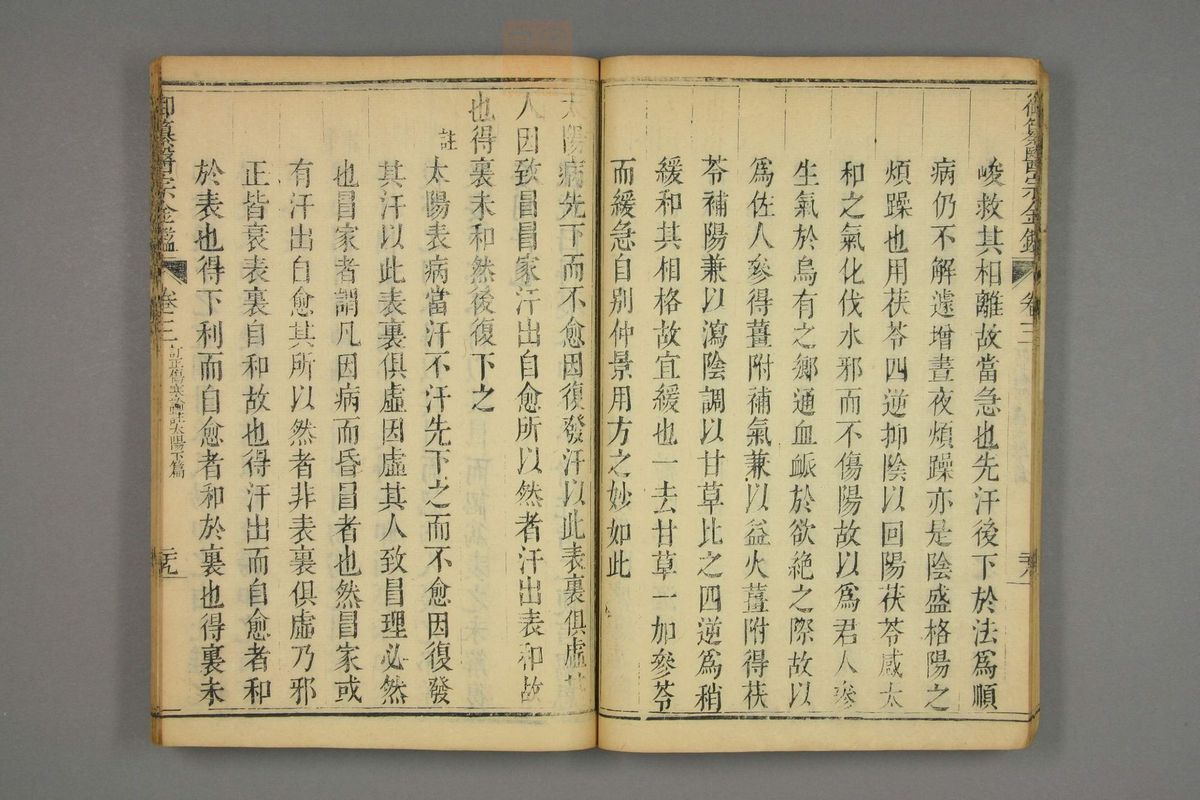 御纂醫宗金鑑
卷三
峻救其相離故當急也先汗後下於法爲順
病仍不解遽增晝夜煩躁亦是陰盛格陽之
煩躁也用茯苓四逆抑陰以回陽茯苓感太
和之氣化伐水邪而不傷陽故以爲君人參
生氣於烏有之鄉通血脈於欲絶之際故以
爲佐人參得薑附補氣兼以益火薑附得茯
苓補陽兼以瀉陰調以甘草比之四逆爲稍
緩和其相格故宜緩也一去甘草一加參苓
而緩急自別仲景用方之妙如此
太陽病先下而不愈因復發汗以此表裏俱虛其
人因致冒冒家汗出自愈所以然者汗出表和故
也得裏未和然後復下之
註 太陽表病當汗不汗先下之而不愈因復發
其汗以此表裏俱虛因虛其人致冒理必然
也冒家者謂凡因病而昏冒者也然冒家或
有汗出自愈其所以然者非表裏俱虛乃邪
正皆衰表裏自和故也得汗出而自愈者和
於表也得下利而自愈者和於裏也得裏未
御纂醫宗金鑑
卷三
訂正傷寒論註太陽下篇
二十九